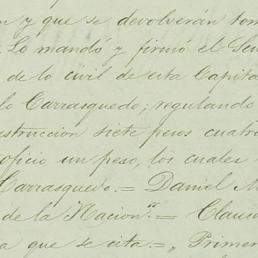 n y que se devolverán tom
Lo mandó y firmó el Seu
de lo civil de esta Capita
lo Carrasquedo; regulando
strucción siete pesos cuatro
oficio un peso, los cuales
Carrasquedo.= Daniel M
de la Nación".= Claus
a que se cita.= "Primer